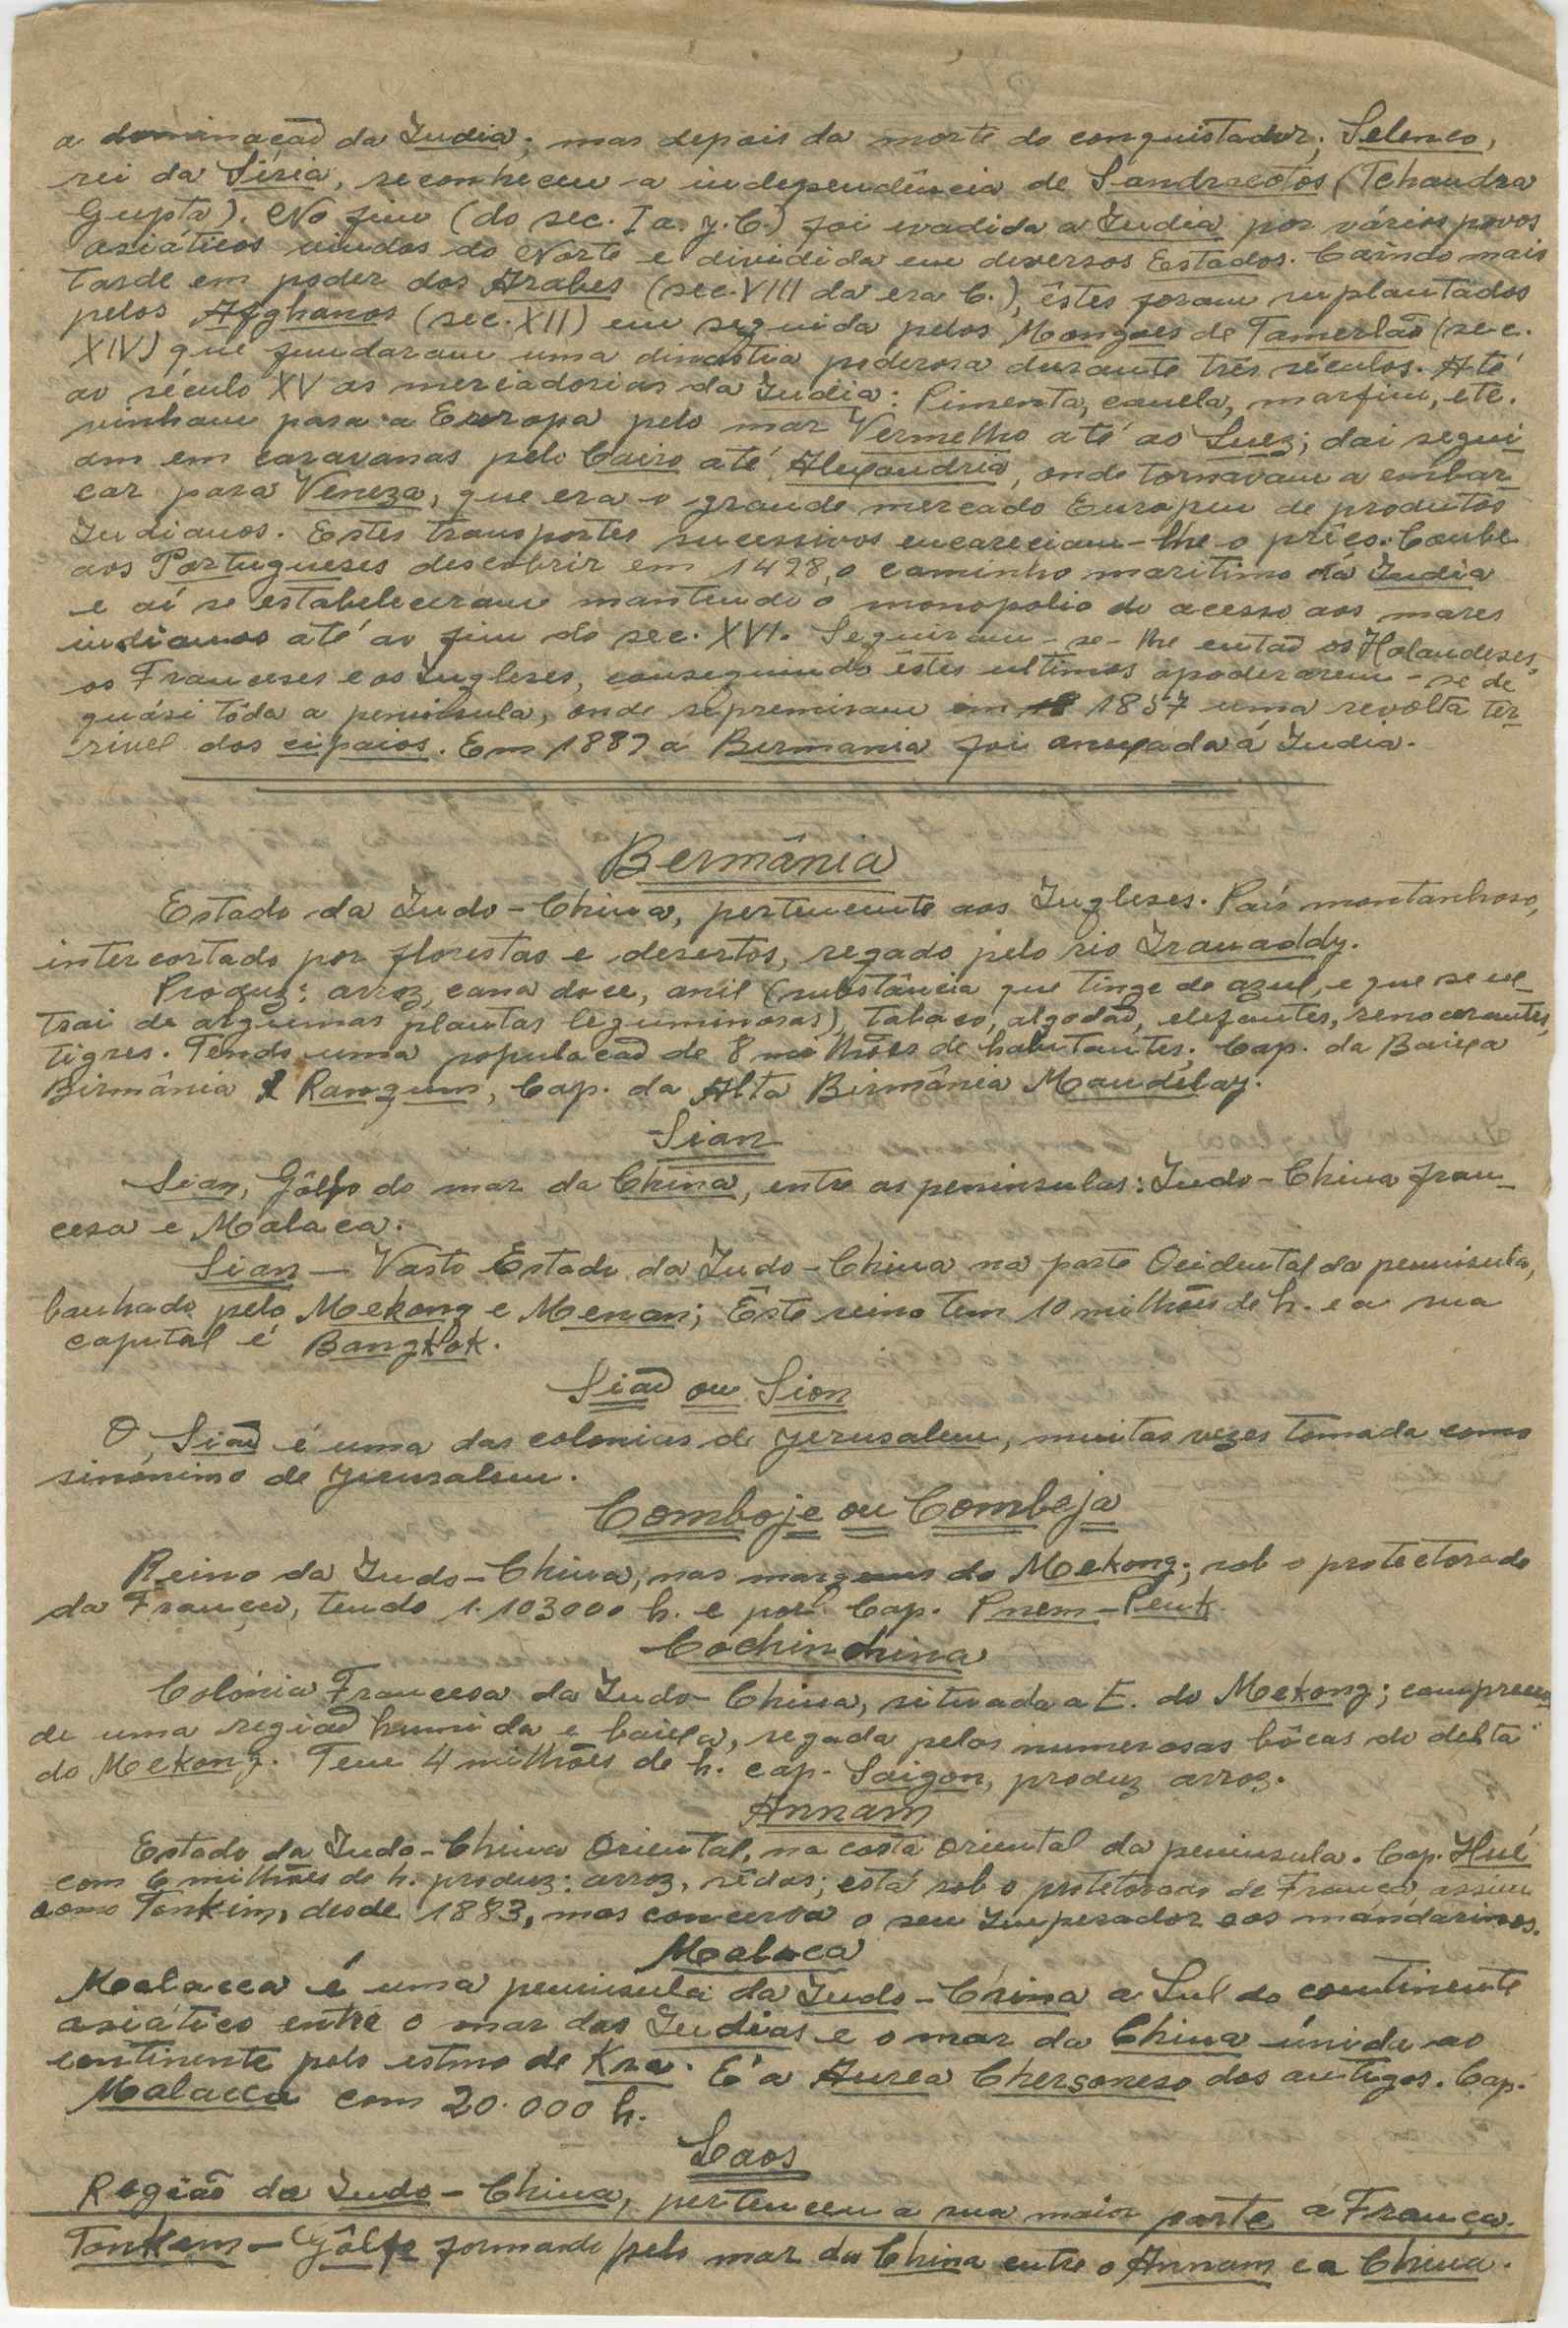 a dominação da India; mas depois da morte do conquistador; Selenco,
rei da Síria, reconheceu-a independência de Sandracotos (Tchandra
Gupta). No fim (do sec. I a. J. C.) foi evadida a India por vários povos
asiáticos vindos do Norte e dividida em diversos Estados. Caindo mais
tarde em poder dos Arabes (sec. VIII da era C.), êstes foram suplantados
pelos Afghanos (sec. XII) em seguida pelos Mongoes de Tamerlão (sec.
XIV) que fundaram uma dinastia poderosa durante três séculos. Até
ao século XV as mercadorias da India: Pimenta, canela, marfim, etc.
vinham para a Europa pelo mar Vermelho até ao Suez; dai segui
am em caravanas pelo Cairo até Alexandria, onde tornavam a embar
car para Veneza, que era o grande mercado Europeu de produtos
Indianos. Estes transportes sucessivos encareciam-lhe o prêço. Coube
aos Portugueses descobrir em 1498, o caminho maritimo da India
e aí se estabeleceram mantendo o monopolio do acesso aos mares
indianos até ao fim do sec. XVI. Seguiram-se-lhe então os Holandeses,
os Franceses e os Ingleses, conseguindo êstes ultimos apoderarem-se de
quási tôda a peninsula, onde repremiram em 1857 uma revolta ter
rivel dos cipaios. Em 1887 a Birmania foi anexada á India.
Bermânia
Estado da Indo-China, pertencente aos Ingleses. País montanhoso,
intercortado por florestas e desertos, regado pelo rio Irauaddy.
Produz: arroz, cana doce, anil (substância que tinge de azul, e que se ex
trai de algumas plantas leguminosas), tabaco, algodão, elefantes, renocerantes,
tigres. Tendo uma população de 8 milhões de habitantes. Cap. da Baixa
Birmânia Rangum, Cap. da Alta Birmânia Mandelay.
Sian
Sian, Gôlfo do mar da China, entre as peninsulas: Indo-China fran
cesa e Malaca.
Sian - Vasto Estado da Indo-China na parte Ocidental da peninsula,
banhado pelo Mekong e Menan; Êste reino tem 10 milhões de h. e a sua
capital é Bangkok.
Sião ou Sion
O, Sião é uma das colonias de Jerusalem, muitas vezes tomada como
sinonimo de Jerusalem.
Comboje ou Combeja
Reino da Indo-China, nas margens do Mekong; sob o protectorado
da França, tendo 1.103000 h. e por Cap. Pnem-Penk
Cochinchina
Colónia Francesa da Indo-China, situada a E. do Mekong; compreen
de uma região humida e baixa, regada pelas numerosas bôcas do delta
do Mekong. Tem 4 milhões de h. cap. Saigon, produz arroz.
Annam
Estado da Indo-China Oriental, na costa Oriental da peninsula. Cap. Hué
com 6 milhões de h. produz: arroz, sêdas; está sob o protetorado de França, assim
como Tonkim, desde 1883, mas concerva o seu Imperador e os mandarinos.
Malaca
Malacca é uma peninsula da Indo-China a Sul do continente
asiático entre o mar das Indias e o mar da China únida ao
continente pelo estmo de Kra. É a Aurea Chersoneso dos antigos. Cap.
Malacca com 20.000 h.
Laos
Região da Indo-China, pertenceu a sua maior parte á França.
Tonkem - Gôlfo formado pelo mar da China entre o Annam e a China.